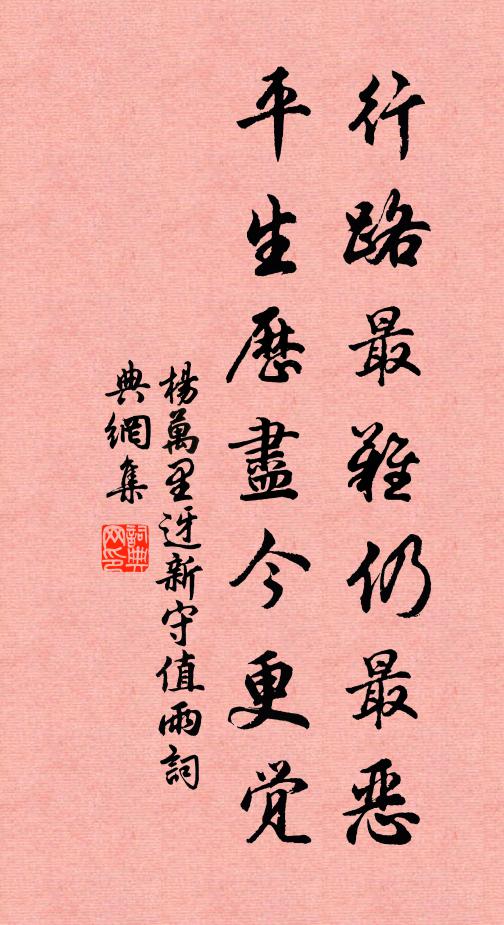 行路最難仍最惡
平生歷盡今更覺
楊萬里迓新守值雨詞
典網集
詞典网印